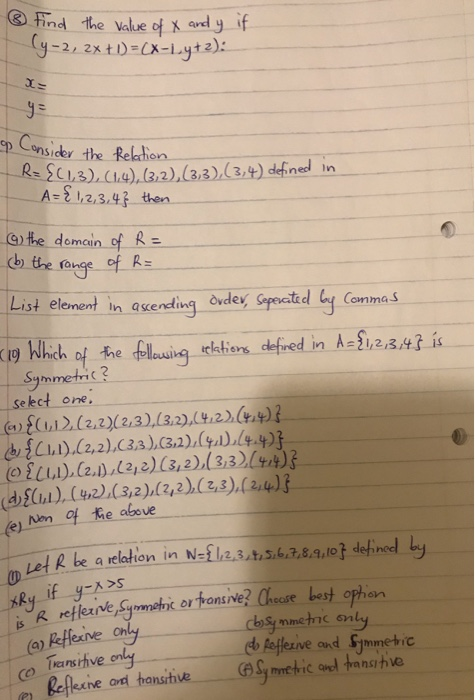 ⑧ Find the value of x and y if
(y-2, 2x+1)=(x-1,y+2):
x=
y=
9) Consider the Relation
R={(1,3),(1,4),(3,2),(3,3),(3,4) defined in
A={1,2,3,4} then
(a) the domain of R =
(b) the range of R=
List element in ascending order, seperated by commas
(10) Which of the following relations defined in A={1,2,3,4} is
symmetric?
select one:
(a) {(1,1),(2,2)(2,3),(3,2),(4,2),(4,4)}
(b) {(1,1),(2,2),(3,3),(3,2),(4,1),(4,4)}
(c) {(1,1),(2,1),(2,2)(3,2),(3,3),(4,4)}
(d) {(1,1),(4,2),(3,2),(2,2),(2,3),(2,4)}
(e) Non of the above
⑪ Let R be a relation in N={1,2,3,4,5,6,7,8,9,10} defined by
xRy if y-x>5
is R reflexive, Symmetric or transive? Choose best option
(a) Reflexive only
(b) symmetric only
(c) Transitive only
(d) Reflexive and Symmetric
(e) Reflexive and transitive
(f) Symmetric and transitive